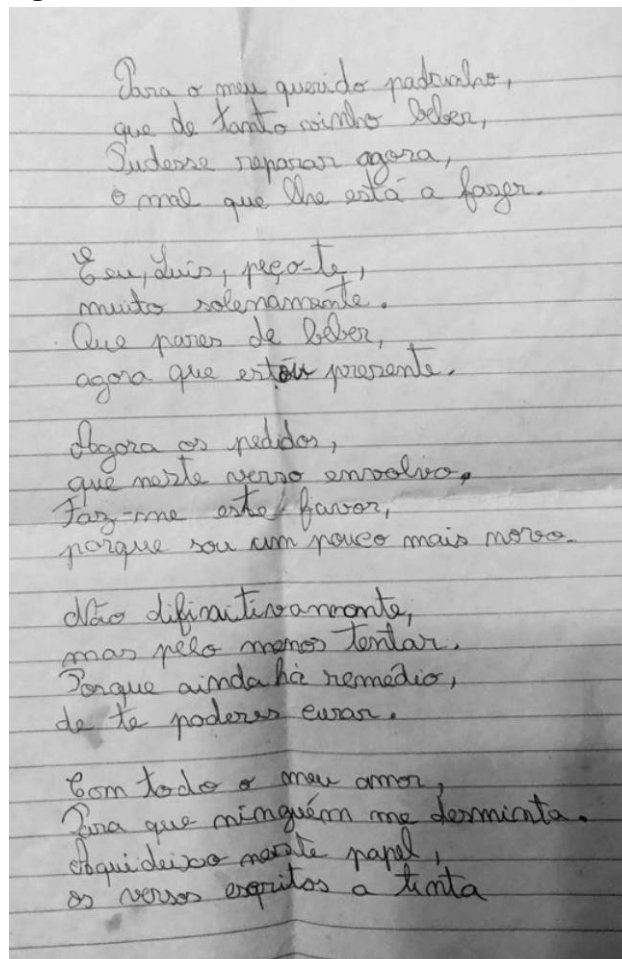 Para o meu querido padrinho,
que de tanto vinho beber,
Pudesse reparar agora,
o mal que lhe está a fazer.
Eu, Luis, peço-te,
muito solenamente.
Que pares de beber,
agora que estou presente.
Agora os pedidos,
que neste verso envolvo,
Faz-me este favor,
porque sou um pouco mais novo.
Não difinitivamente,
mas pelo menos tentar.
Porque ainda há remédio,
de te poderes curar.
Com todo o meu amor,
Para que ninguém me desminta.
Aqui deixo neste papel,
os versos esqritos a tinta